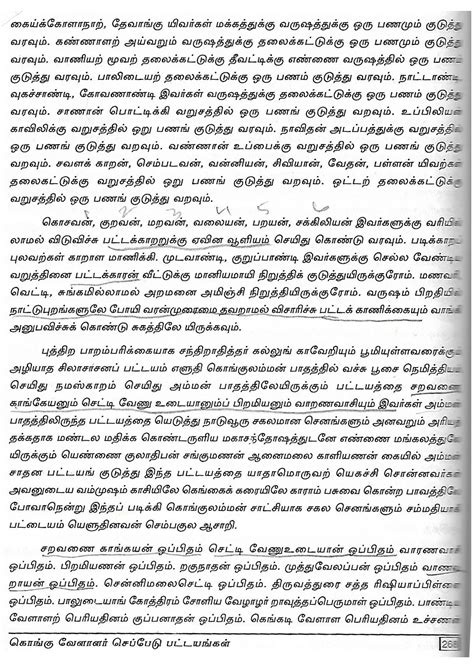 கைய்க்கோளாநாற், தேவாங்கு யிவர்கள் மக்கத்துக்கு வருஷத்துக்கு ஒரு பணமும் குடுத்து
வரவும். கண்ணாளற் அய்வறும் வருஷத்துக்கு தலைக்கட்டுக்கு ஒரு பணமும் குடுத்து
வரவும். வாணியற் மூவற் தலைக்கட்டுக்கு தீவட்டிக்கு எண்ணை வருஷத்தில் ஒரு பணம்
குடுத்து வரவும். பாலிடையற் தலைக்கட்டுக்கு ஒரு பணம் குடுத்து வரவும். நாட்டாண்டி
வுகச்சாண்டி, கோவணாண்டி இவர்கள் வருஷத்துக்கு தலைக்கட்டுக்கு ஒரு பணம் குடுத்து
வரவும். சாணான் பொட்டிக்கி வறுசத்தில் ஒரு பணங் குடுத்து வரவும். உப்பிலியன்
காவிலிக்கு வறுசத்தில் ஒறு பணங் குடுத்து வரவும். நாவிதன் அடப்பத்துக்கு வறுசத்தில்
ஒரு பணங் குடுத்து வறவும். வண்ணான் உப்பைக்கு வறுசத்தில் ஒரு பணங் குடுத்து
வறவும். சவளக் காறன், செம்படவன், வன்னியன், சிவியான், வேதன், பள்ளன் யிவற்கள்
தலைகட்டுக்கு வறுசத்தில் ஒறு பணங் குடுத்து வறவும். ஒட்டற் தலைகட்டுக்கு
வறுசத்தில் ஒரு பணங் குடுத்து வறவும்.
கொசவன், குறவன், மறவன், வலையன், பறயன், சக்கிலியன் இவர்களுக்கு வரியி
லாமல் விடுவிச்சு பட்டக்காறறுக்கு ஏவின வூளியம் செய்து கொண்டு வரவும். படிக்காற
புலவற்கள் காறாள மாணிக்கி. முடவாண்டி, குறுப்பாண்டி இவர்களுக்கு செல்ல வேண்டி
வறுத்தினை பட்டக்காரன் வீட்டுக்கு மானியமாயி நிறுத்திக் குடுத்துயிருக்குரோம். மணவரி
வெட்டி, சுங்கமில்லாமல் அறமனை அமிஞ்சி நிறுத்தியிருக்குரோம். வருஷம் பிறதியில்
நாட்டுபுறங்களுலே போயி வரன்முரைமை தவறாமல் விசாரிச்சு பட்டக் காணிக்கையும் வாங்கி
அனுபவிச்சுக் கொண்டு சுகத்திலே யிருக்கவும்.
புத்திற பாறம்பரிக்கையாக சந்திறாதித்தர் கல்லுங் காவேறியும் பூமியுள்ளவரைக்கும்
அழியாத சிலாசாசனப் பட்டயம் எளுதி கொங்குலம்மன் பாதத்தில் வச்சு பூசை நெமித்திய
செய்து நமஸ்காறம் செய்து அம்மன் பாதத்திலேயிருக்கும் பட்டயத்தை சறவணை
காங்கேயனும் செட்டி வேணு உடையானும்ப் பிறமியனும் வாறணவாசியும் இவர்கள் அம்மன்
பாதத்திலிருந்த பட்டயத்தை யெடுத்து நாடுவூரு சகலமான செனங்களும் அனவறும் அறியத்
தக்கதாக மண்டல மதிக்க கொண்டருளிய மகாசந்தோஷத்துடனே எண்ணை மங்கலத்து
யிருக்கும் யெண்ணை குலாதிபன் சங்குமணன் ஆனைமலை காளியணன் கையில் அம்மன்
சாதன பட்டயங் குடுத்து இந்த பட்டயத்தை யாதாமொருவற் யெகச்சி சொன்னவர்கள்
அவனுடைய வம்முஷம் காசியிலே கெங்கைக் கரையிலே காராம் பசுவை கொன்ற பாவத்திலே
போவாநென்று இந்தப் படிக்கி கொங்குலம்மன் சாட்சியாக சகல செனங்களும் சம்மதியாக
பட்டையம் யெளுதினவன் செம்பகுல ஆசாறி.
சறவணை காங்கயன் ஒப்பிதம் செட்டி வேணுஉடையான் ஒப்பிதம் வாரணவாசி
ஒப்பிதம். பிறமியணன் ஒப்பிதம். றகுநாதன் ஒப்பிதம். முத்துவேலப்பன் ஒப்பிதம் வாணவ
றாயன் ஒப்பிதம். சென்னிமலைசெட்டி ஒப்பிதம். திருவத்துரை சத்த ரிஷியாப்பிள்ளை
ஒப்பிதம். பாலுடையாங் கோத்திரம் சோளிய வேழாழர் றாவுத்தப்பெருமாள் ஒப்பிதம். பாண்டிய
வேளாளற் பெரியதினம் குப்பனாதன் ஒப்பிதம். கெங்கடி வேளாள பெரியதினம் உச்சணன்
கொங்கு வேளாளர் செப்பேடு பட்டயங்கள்
268